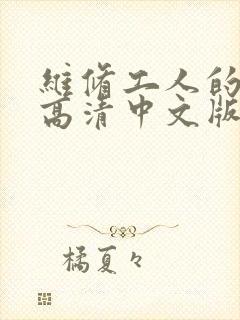 維脩工人的
高清中文版
橘夏々